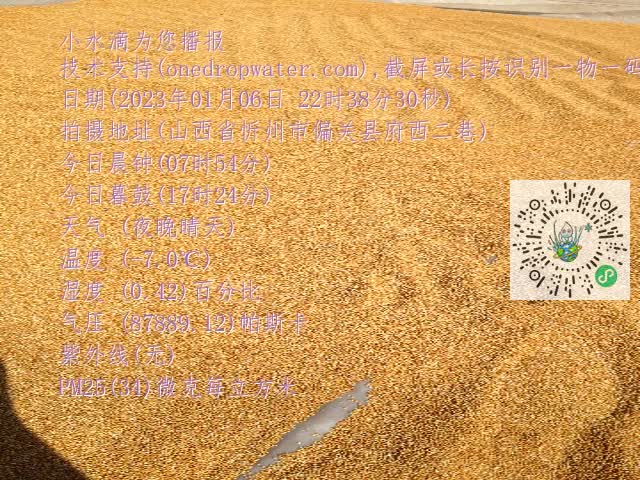 小水滴为您播报
技术支持(onedropwater.com),截屏或长按识别一物一码
日期(2023年01月06日 22时38分30秒)
拍摄地址(山西省忻州市偏关县府西二巷)
今日晨钟(07时54分)
今日暮鼓(17时24分)
天气 (夜晚晴天)
温度 (-7.0℃)
湿度 (0.42)百分比
气压 (87889.12)帕斯卡
紫外线(无)
PM25(34)微克每立方米